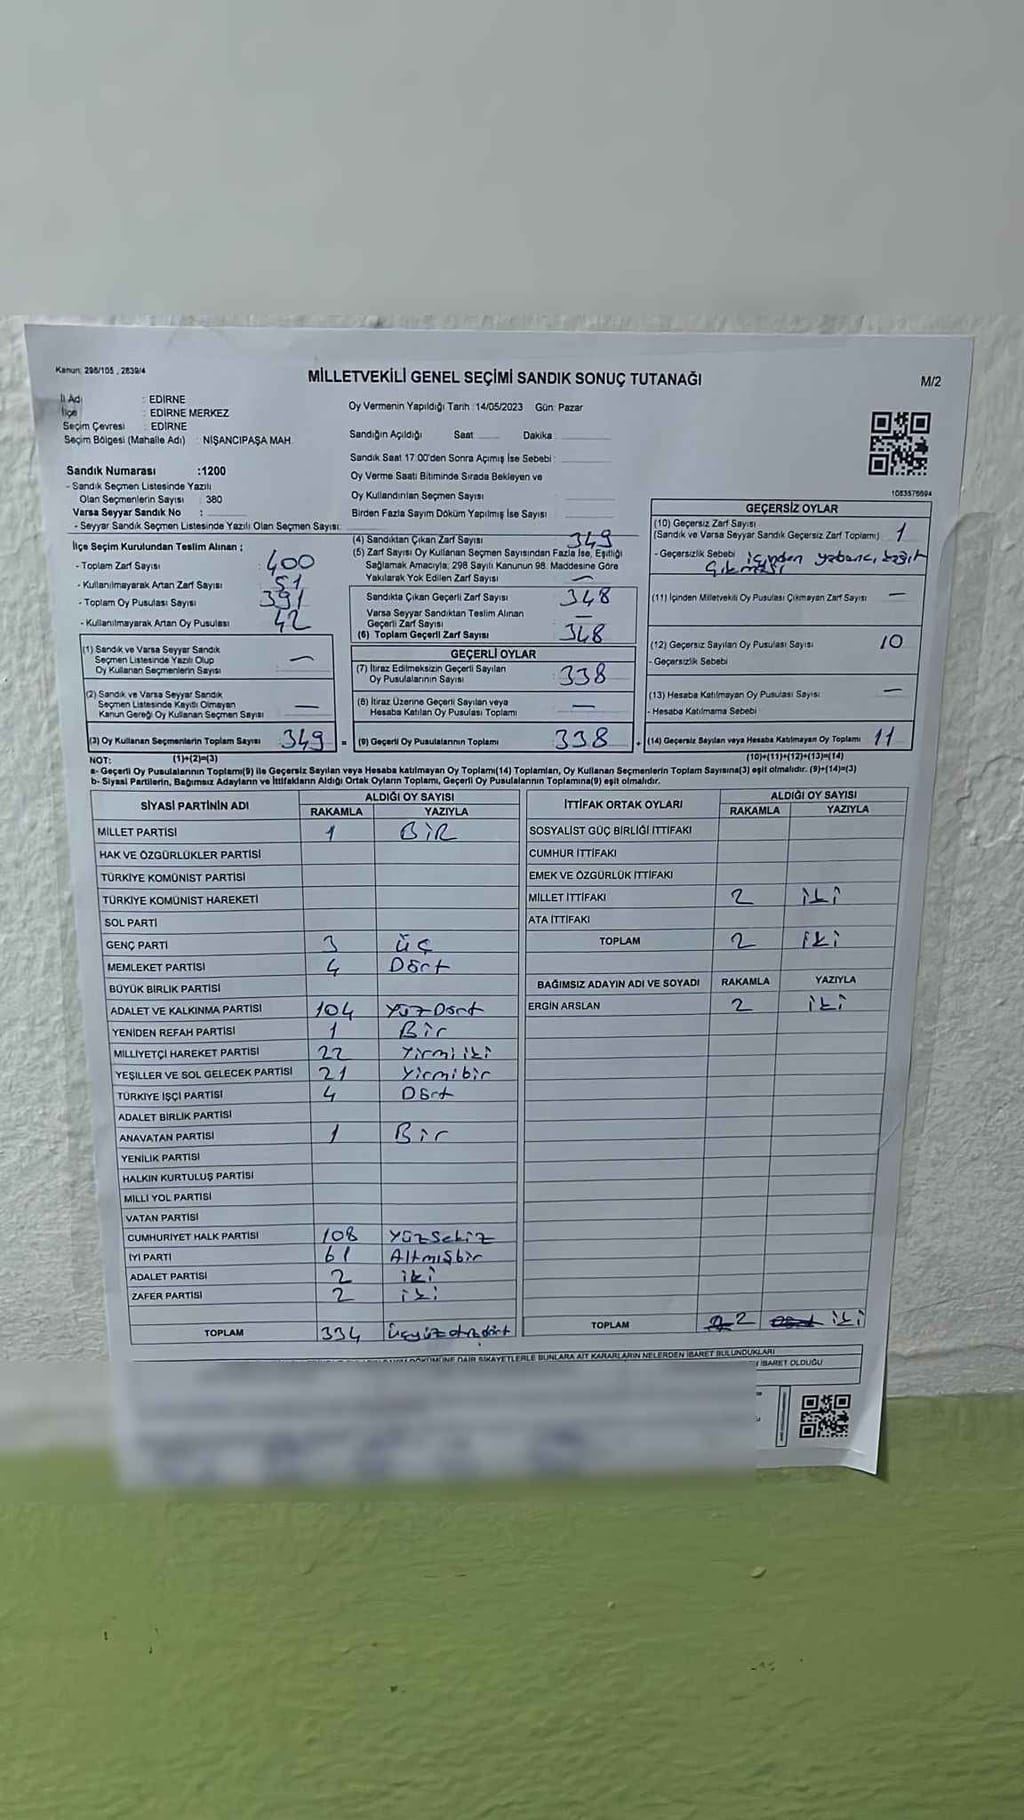 Kanun: 298/105 , 2839/4
MİLLETVEKİLİ GENEL SEÇİMİ SANDIK SONUÇ TUTANAĞI
M/2
İl Adı : EDİRNE
İlçe : EDİRNE MERKEZ
Seçim Çevresi : EDİRNE
Seçim Bölgesi (Mahalle Adı) : NİŞANCIPAŞA MAH.
Sandık Numarası :1200
- Sandık Seçmen Listesinde Yazılı
Olan Seçmenlerin Sayısı : 380
Varsa Seyyar Sandık No :
- Seyyar Sandık Seçmen Listesinde Yazılı Olan Seçmen Sayısı:
Oy Vermenin Yapıldığı Tarih :14/05/2023 Gün: Pazar
Sandığın Açıldığı Saat Dakika :
Sandık Saat 17:00'den Sonra Açımış İse Sebebi :
Oy Verme Saati Bitiminde Sırada Bekleyen ve
Oy Kullandırılan Seçmen Sayısı
Birden Fazla Sayım Döküm Yapılmış İse Sayısı
1083576694
İlçe Seçim Kurulundan Teslim Alınan ;
- Toplam Zarf Sayısı : 400
- Kullanılmayarak Artan Zarf Sayısı : 51
- Toplam Oy Pusulası Sayısı : 391
- Kullanılmayarak Artan Oy Pusulası : 42
(1) Sandık ve Varsa Seyyar Sandık
Seçmen Listesinde Yazılı Olup
Oy Kullanan Seçmenlerin Sayısı —
(2) Sandık ve Varsa Seyyar Sandık
Seçmen Listesinde Kayıtlı Olmayan
Kanun Gereği Oy Kullanan Seçmen Sayısı —
(3) Oy Kullanan Seçmenlerin Toplam Sayısı 349 =
(1)+(2)=(3)
(4) Sandıktan Çıkan Zarf Sayısı 349
(5) Zarf Sayısı Oy Kullanan Seçmen Sayısından Fazla İse, Eşitliği
Sağlamak Amacıyla, 298 Sayılı Kanunun 98. Maddesine Göre
Yakılarak Yok Edilen Zarf Sayısı —
Sandıkta Çıkan Geçerli Zarf Sayısı 348
Varsa Seyyar Sandıktan Teslim Alınan
Geçerli Zarf Sayısı —
(6) Toplam Geçerli Zarf Sayısı 348
GEÇERLİ OYLAR
(7) İtiraz Edilmeksizin Geçerli Sayılan
Oy Pusulalarının Sayısı 338
(8) İtiraz Üzerine Geçerli Sayılan veya
Hesaba Katılan Oy Pusulası Toplamı —
(9) Geçerli Oy Pusulalarının Toplamı 338 +
GEÇERSİZ OYLAR
(10) Geçersiz Zarf Sayısı
(Sandık ve Varsa Seyyar Sandık Geçersiz Zarf Toplamı) 1
- Geçersizlik Sebebi içinden yabancı kağıt
çıkması
(11) İçinden Milletvekili Oy Pusulası Çıkmayan Zarf Sayısı —
(12) Geçersiz Sayılan Oy Pusulası Sayısı 10
- Geçersizlik Sebebi
(13) Hesaba Katılmayan Oy Pusulası Sayısı —
- Hesaba Katılmama Sebebi
(14) Geçersiz Sayılan veya Hesaba Katılmayan Oy Toplamı 11
(10)+(11)+(12)+(13)=(14)
NOT:
a- Geçerli Oy Pusulalarının Toplamı(9) ile Geçersiz Sayılan veya Hesaba katılmayan Oy Toplamı(14) Toplamları, Oy Kullanan Seçmenlerin Toplam Sayısına(3) eşit olmalıdır. (9)+(14)=(3)
b- Siyasi Partilerin, Bağımsız Adayların ve İttifakların Aldığı Ortak Oyların Toplamı, Geçerli Oy Pusulalarının Toplamına(9) eşit olmalıdır.
SİYASİ PARTİNİN ADI ALDIĞI OY SAYISI
RAKAMLA YAZIYLA
MİLLET PARTİSİ 1 BİR
HAK VE ÖZGÜRLÜKLER PARTİSİ
TÜRKİYE KOMÜNİST PARTİSİ
TÜRKİYE KOMÜNİST HAREKETİ
SOL PARTİ
GENÇ PARTİ 3 üç
MEMLEKET PARTİSİ 4 Dört
BÜYÜK BİRLİK PARTİSİ
ADALET VE KALKINMA PARTİSİ 104 YüzDört
YENİDEN REFAH PARTİSİ 1 Bir
MİLLİYETÇİ HAREKET PARTİSİ 22 Yirmiiki
YEŞİLLER VE SOL GELECEK PARTİSİ 21 Yirmibir
TÜRKİYE İŞÇİ PARTİSİ 4 Dört
ADALET BİRLİK PARTİSİ
ANAVATAN PARTİSİ 1 Bir
YENİLİK PARTİSİ
HALKIN KURTULUŞ PARTİSİ
MİLLİ YOL PARTİSİ
VATAN PARTİSİ
CUMHURİYET HALK PARTİSİ 108 YüzSekiz
İYİ PARTİ 61 Altmışbir
ADALET PARTİSİ 2 iki
ZAFER PARTİSİ 2 iki
TOPLAM 334 Üçyüzotuzdört
İTTİFAK ORTAK OYLARI ALDIĞI OY SAYISI
RAKAMLA YAZIYLA
SOSYALİST GÜÇ BİRLİĞİ İTTİFAKI
CUMHUR İTTİFAKI
EMEK VE ÖZGÜRLÜK İTTİFAKI
MİLLET İTTİFAKI 2 iki
ATA İTTİFAKI
TOPLAM 2 iki
BAĞIMSIZ ADAYIN ADI VE SOYADI RAKAMLA YAZIYLA
ERGİN ARSLAN 2 iki
TOPLAM 2 iki
DÖKÜMÜNE DAİR ŞİKAYETLERLE BUNLARA AİT KARARLARIN NELERDEN İBARET BULUNDUKLARI
İBARET OLDUĞU